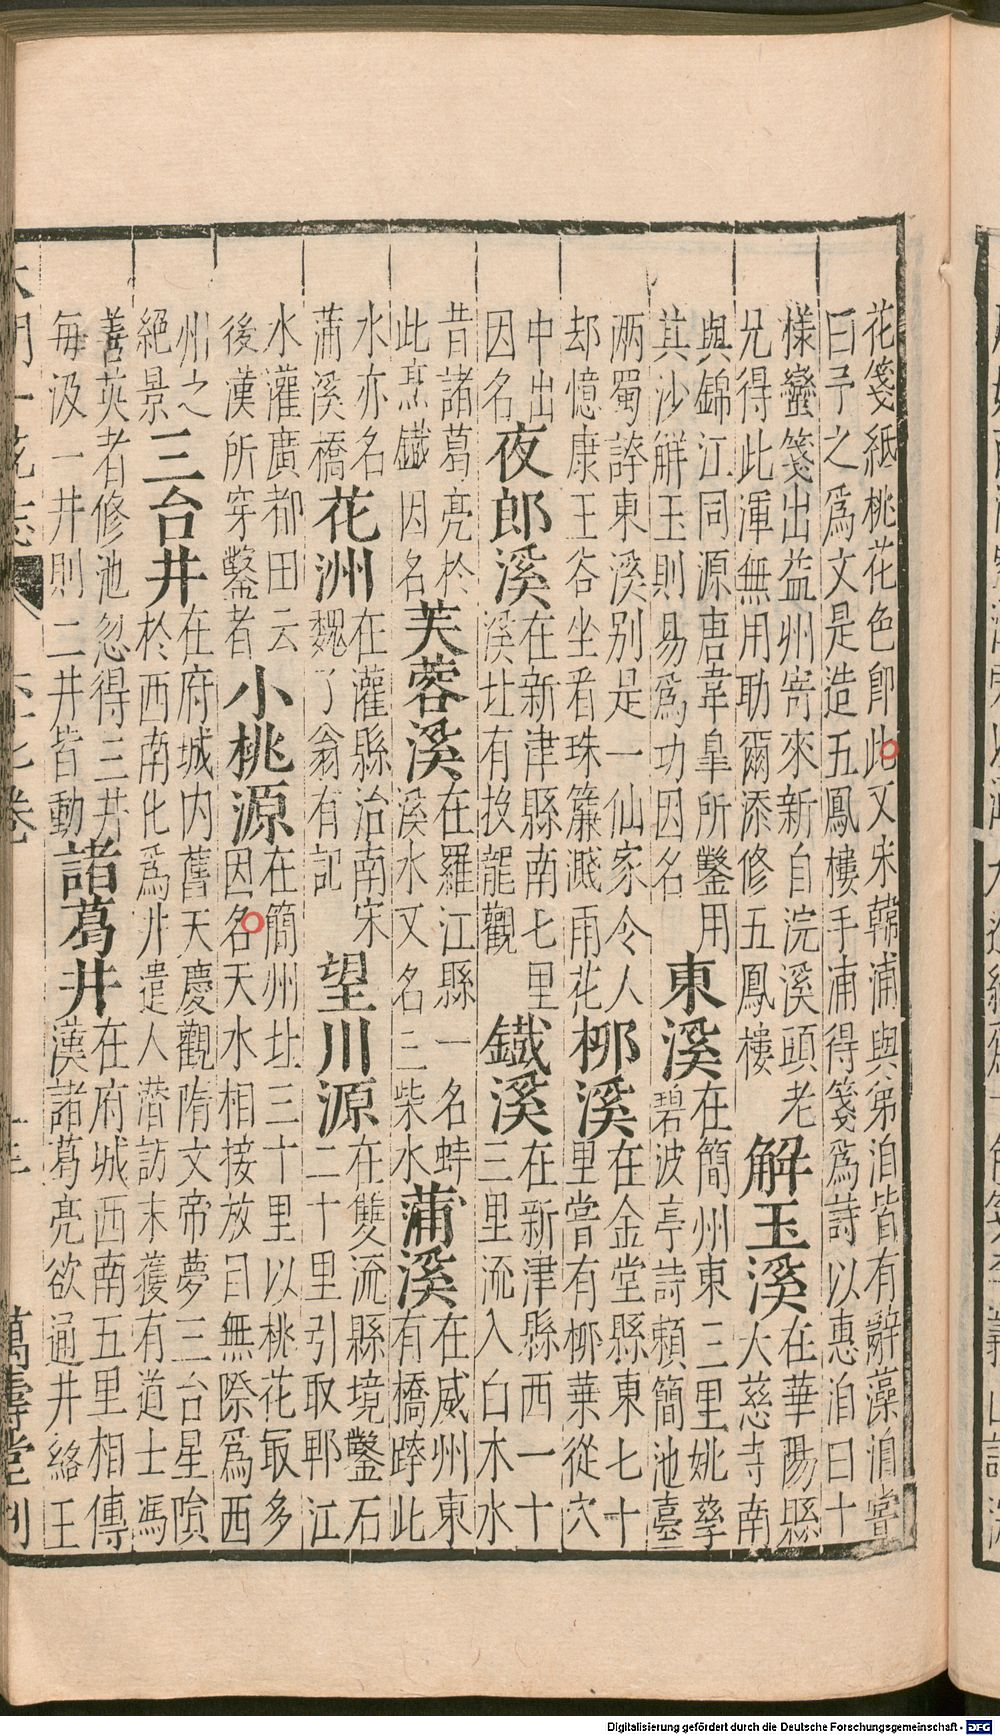 花箋紙桃花色即此又宋韓浦與弟洎皆有辭藻洎嘗
曰予之爲文是造五鳳樓手浦得箋爲詩以惠洎曰十
樣蠻箋出益州寄來新自浣溪頭老
兄得此渾無用助爾添修五鳳樓
解玉溪
在華陽縣
大慈寺南
與錦江同源唐韋皐所鑿用
其沙解玉則易爲功因名
東溪
在簡州東三里姚孳
碧波亭詩賴簡池臺
兩蜀誇東溪別是一仙家令人
却憶康王谷坐看珠簾濺雨花
柳溪
在金堂縣東七十
里嘗有柳葉從穴
中出
因名
夜郎溪
在新津縣南七里
溪北有投龍觀
鐵溪
在新津縣西一十
三里流入白木水
昔諸葛亮於
此烹鐵因名
芙蓉溪
在羅江縣一名蛘
溪水又名三柴水
蒲溪
在威州東
有橋跨此
水亦名
蒲溪橋
花洲
在灌縣治南宋
魏了翁有記
望川源
在雙流縣境鑿石
二十里引取郫江
水灌廣都田云
後漢所穿鑿者
小桃源
在簡州北三十里以桃花最多
因名天水相接放目無際爲西
州之
絕景
三台井
在府城内舊天慶觀隋文帝夢三台星隕
於西南化爲井遣人潛訪未獲有道士馮
善英者修池忽得三井
每汲一井則二井皆動
諸葛井
在府城西南五里相傳
漢諸葛亮欲通井絡王
萬壽堂刊
Digitalisierung gefördert durch die Deutsche Forschungsgemeinschaft - DFG